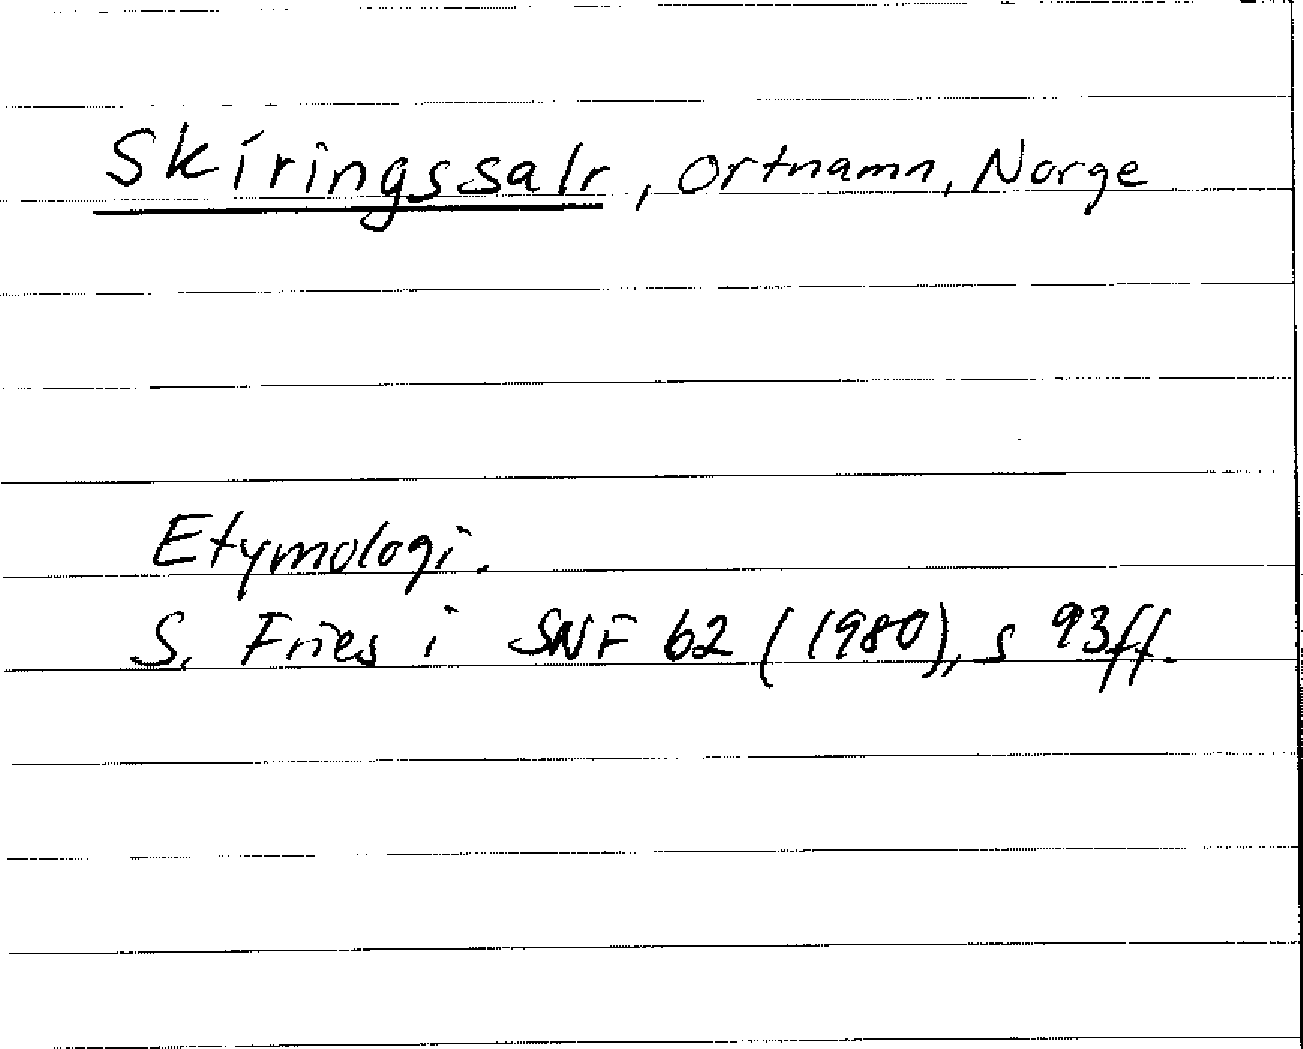 Skíringssalr, ortnamn, Norge
Etymologi.
S. Fries i SNF 62 (1980), s 93ff.